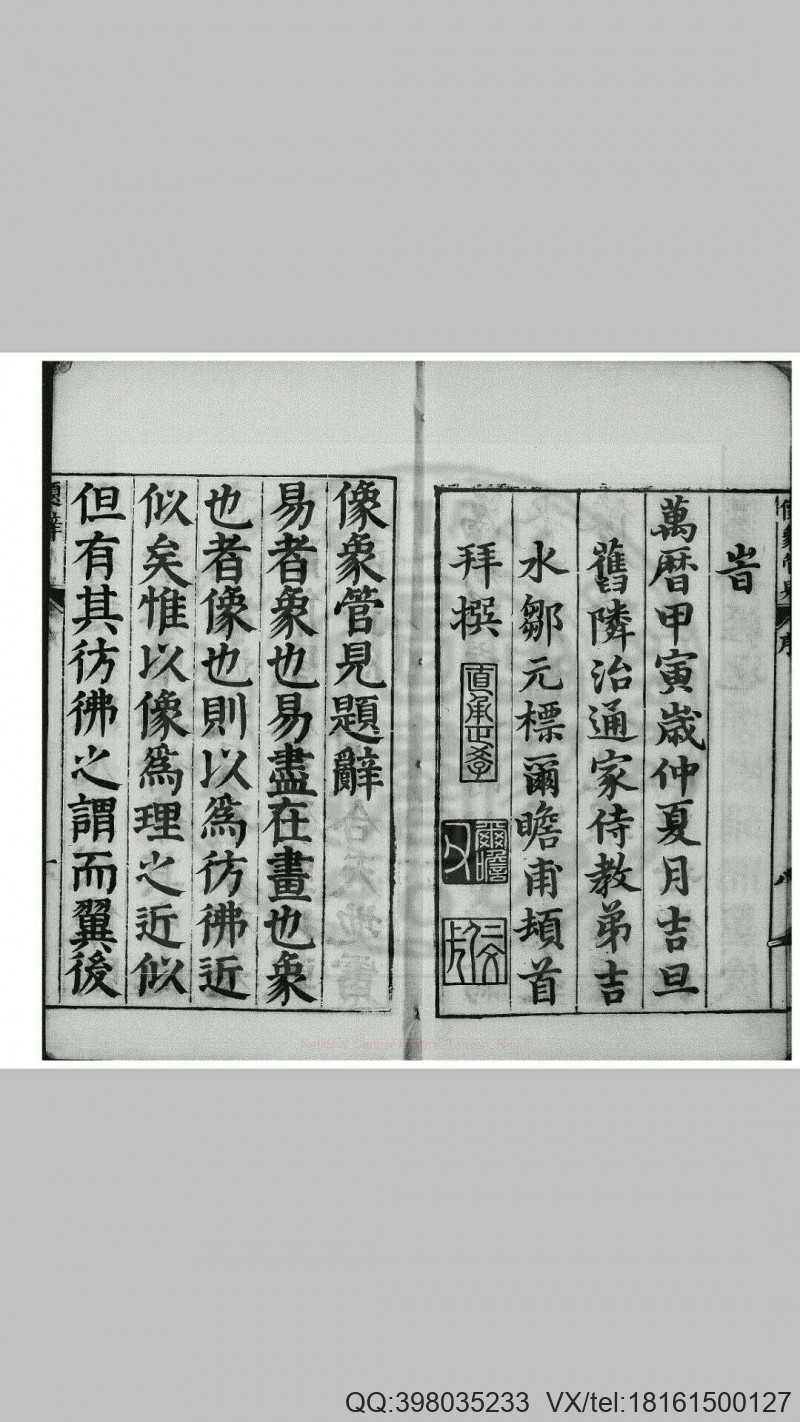 旹
萬曆甲寅歲仲夏月吉旦
舊隣治通家侍教弟吉
水鄒元標爾瞻甫頓首
拜撰
爾瞻
像象管見題辭
易者象也易盡在畫也象
也者像也則以為彷彿近
似矣惟以像為理之近似
但有其彷彿之謂而翼後
題辭
QQ:398035233 VX/tel:18161500127